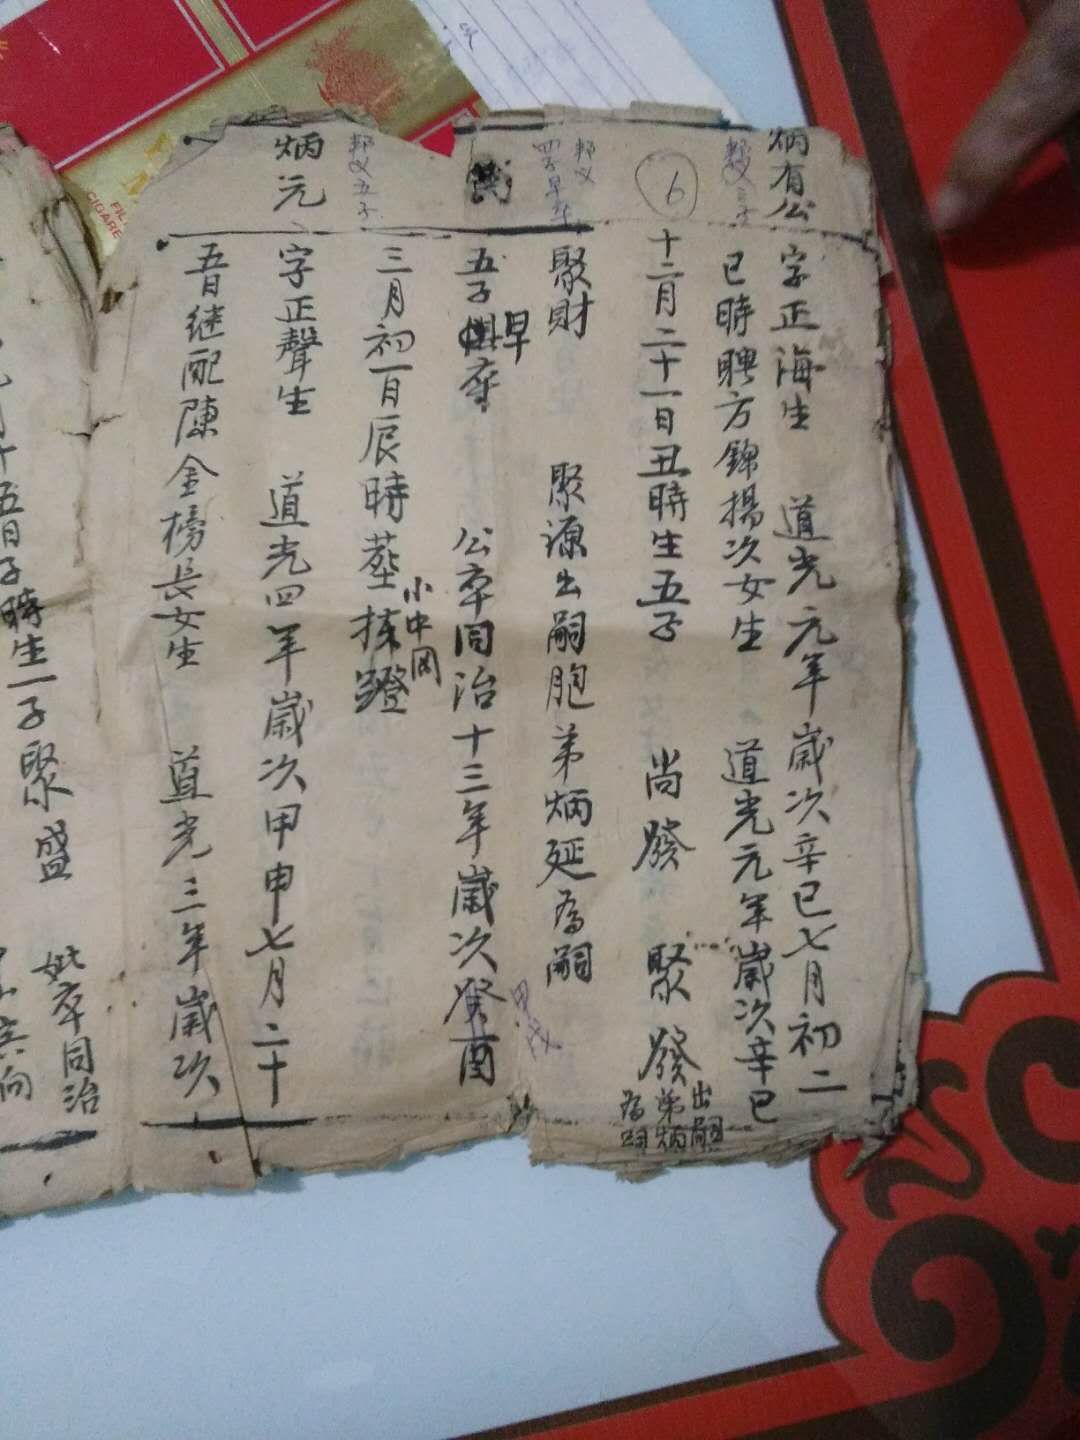 炳有公
字正海生 道光元年歲次辛巳七月初二
巳時聘方錦揚次女生 道光元年歲次辛巳
6
十二月二十一日丑時生五子 尚發 聚發 出嗣弟炳為嗣
聚財 聚源出嗣胞弟炳延為嗣
五子早夭 公卒同治十三年歲次癸酉
三月初一日辰時葬 小中岡
炳元
字正聲生 道光四年歲次甲申七月二十
五日継配陳金榜長女生 道光三年歲次
邦义五子
邦义
月十五日子時生一子聚盛 妣卒同治
向